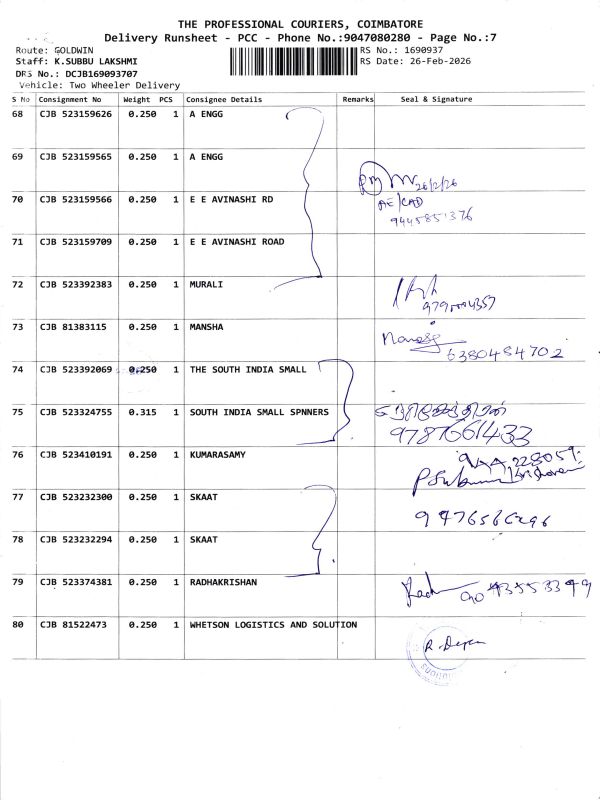 THE PROFESSIONAL COURIERS, COIMBATORE
Delivery Runsheet - PCC - Phone No.:9047080280 - Page No.:7
Route: GOLDWIN
RS No.: 1690937
Staff: K.SUBBU LAKSHMI
RS Date: 26-Feb-2026
DRS No.: DCJB169093707
Vehicle: Two Wheeler Delivery
S No Consignment No Weight PCS Consignee Details Remarks Seal & Signature
68 CJB 523159626 0.250 1 A ENGG
69 CJB 523159565 0.250 1 A ENGG
26/2/26
70 CJB 523159566 0.250 1 E E AVINASHI RD
AE/CAD
71 CJB 523159709 0.250 1 E E AVINASHI ROAD
72 CJB 523392383 0.250 1 MURALI
73 CJB 81383115 0.250 1 MANSHA
6380484702
74 CJB 523392069 0.250 1 THE SOUTH INDIA SMALL
75 CJB 523324755 0.315 1 SOUTH INDIA SMALL SPNNERS
9787661433
76 CJB 523410191 0.250 1 KUMARASAMY
77 CJB 523232300 0.250 1 SKAAT
78 CJB 523232294 0.250 1 SKAAT
79 CJB 523374381 0.250 1 RADHAKRISHAN
80 CJB 81522473 0.250 1 WHETSON LOGISTICS AND SOLUTION